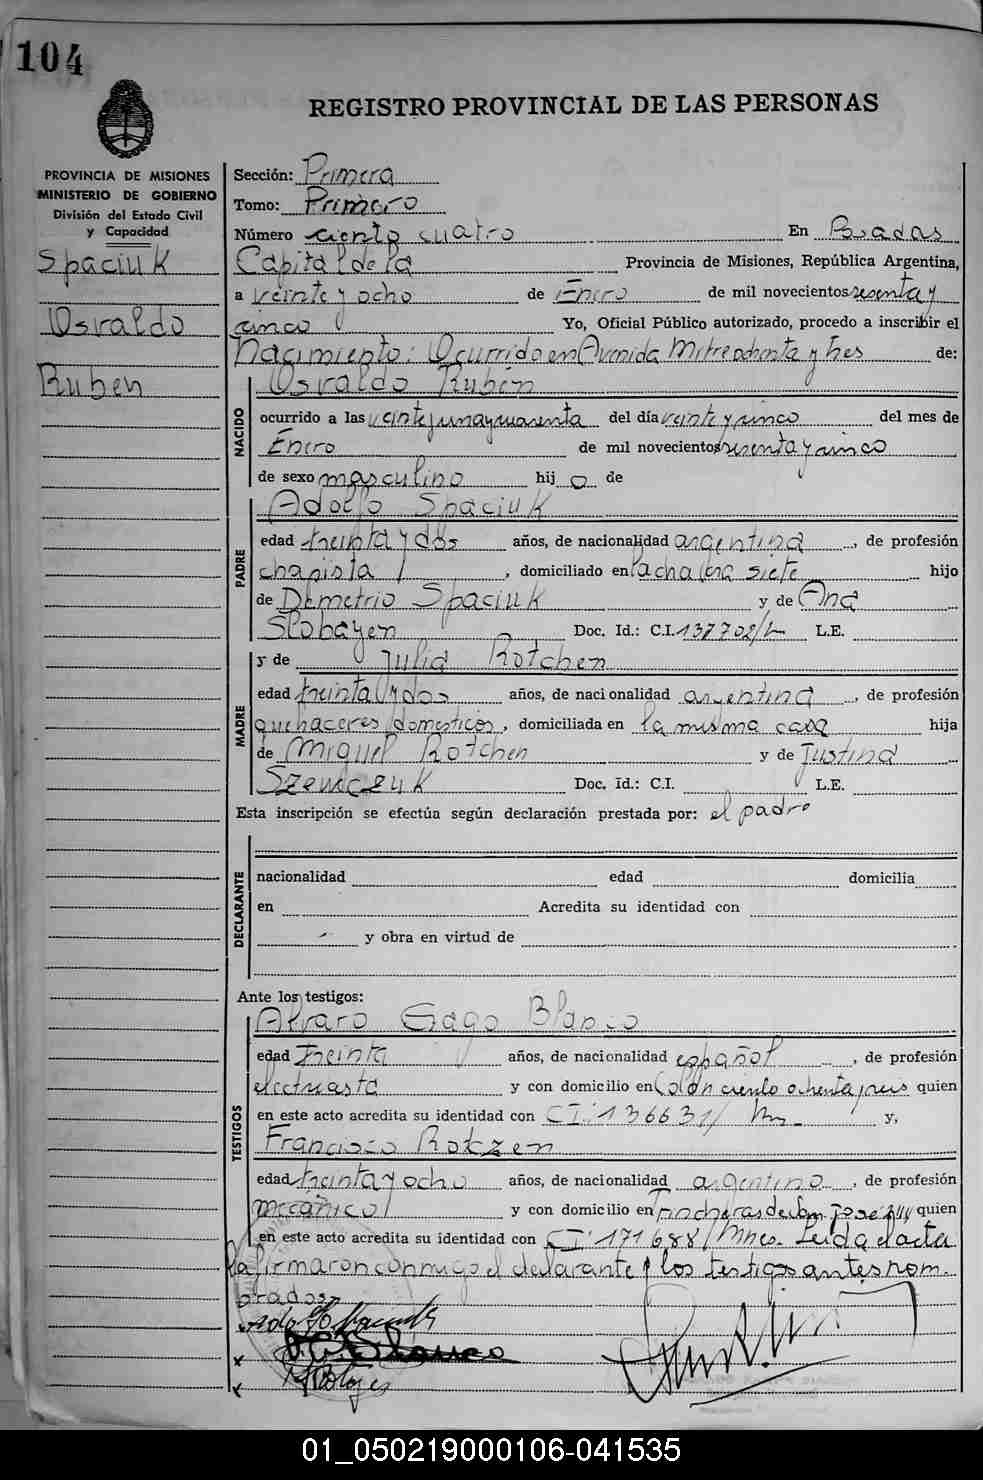 104
REGISTRO PROVINCIAL DE LAS PERSONAS
PROVINCIA DE MISIONES
MINISTERIO DE GOBIERNO
División del Estado Civil
y Capacidad
Spaciuk
Osvaldo
Ruben
Sección: Primera
Tomo: Primero
Número ciento cuatro En Posadas
Capital de la Provincia de Misiones, República Argentina,
a veinte y ocho de Enero de mil novecientos sesenta y
cinco Yo, Oficial Público autorizado, procedo a inscribir el
Nacimiento: Ocurrido en Avenida Mitre ochenta y tres de:
NACIDO
Osvaldo Rubén
ocurrido a las veinte y una y cuarenta del día veinte y cinco del mes de
Enero de mil novecientos sesenta y cinco
de sexo masculino hijo de
PADRE
Adolfo Spaciuk
edad treinta y dos años, de nacionalidad argentina, de profesión
chapista, domiciliado en Chacra siete hijo
de Demetrio Spaciuk y de Ana
Slobayen Doc. Id.: C.I. 137702/ L.E.
MADRE
y de Julia Rotchen
edad treinta y dos años, de nacionalidad argentina, de profesión
quehaceres domesticos, domiciliada en la misma casa hija
de Miguel Rotchen y de Justina
Szewczuk Doc. Id.: C.I. L.E.
Esta inscripción se efectúa según declaración prestada por: el padre
DECLARANTE
nacionalidad edad domicilia
en Acredita su identidad con
y obra en virtud de
Ante los testigos:
TESTIGOS
Alvaro Gago Blanco
edad treinta años, de nacionalidad español, de profesión
y con domicilio en Colón ciento ochenta y seis quien
en este acto acredita su identidad con CI: 136631/ Mn. y,
Francisco Rotzen
edad treinta y ocho años, de nacionalidad argentino, de profesión
mecánico y con domicilio en Trincheras de San José quien
en este acto acredita su identidad con CI: 171688/Mnes. Leida el acta
la firmaron conmigo el declarante y los testigos antes nom-
brados
01_050219000106-041535